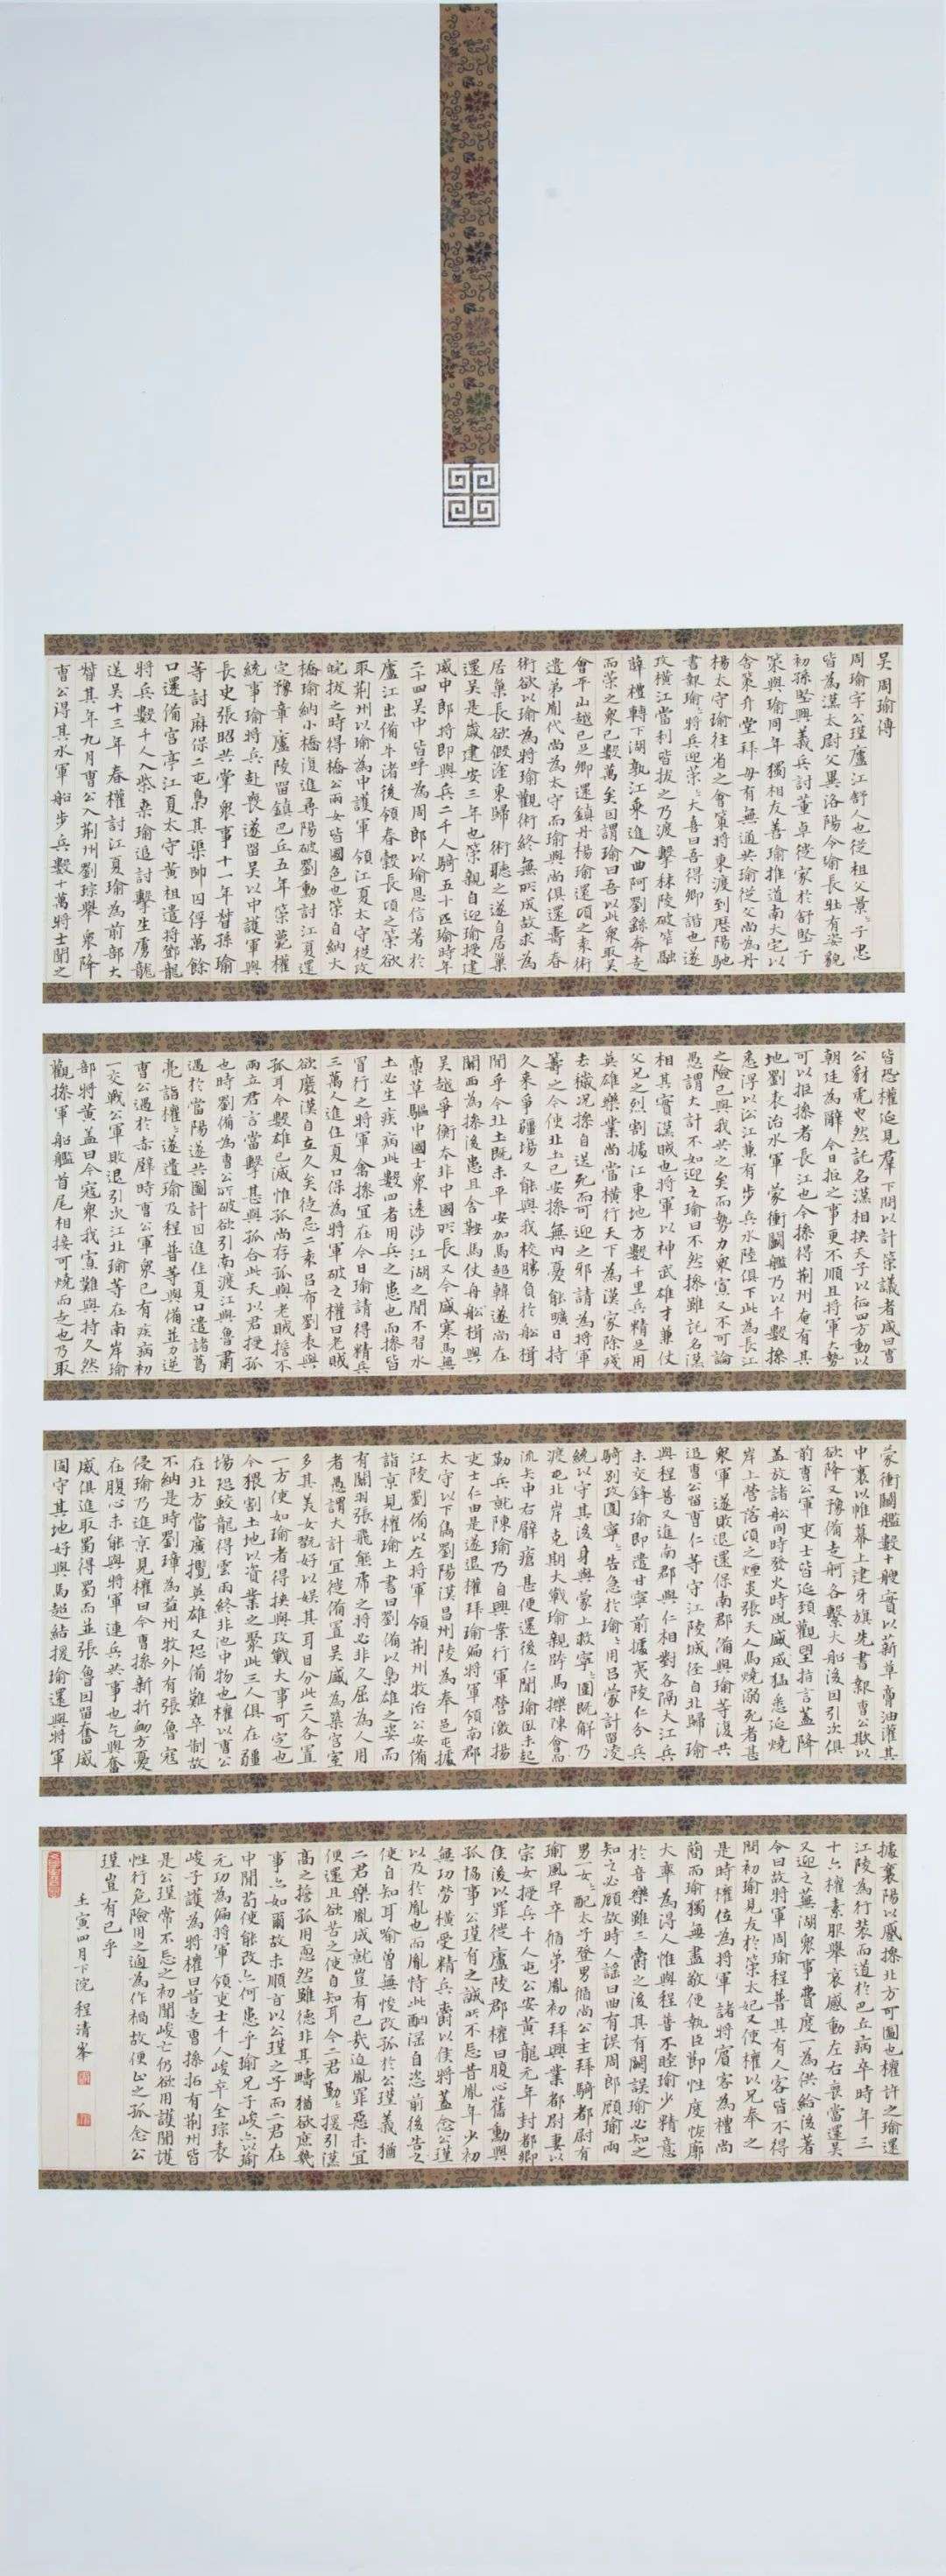 吳周瑜傳
周瑜字公瑾廬江舒人也從祖父景〻子忠
皆為漢太尉父異洛陽令瑜長壯有姿貌
初孫堅興義兵討董卓徙家於舒堅子
策與瑜同年獨相友善瑜推道南大宅以
舍策升堂拜母有無通共瑜從父尚為丹
楊太守瑜往省之會策將東渡到歷陽馳
書報瑜〻將兵迎策〻大喜曰吾得卿諧也遂
攻橫江當利皆拔之乃渡擊秣陵破笮融
薛禮轉下湖孰江乘進入曲阿劉繇奔走
而策之衆已數萬矣因謂瑜曰吾以此衆取吳
會平山越已足卿還鎮丹楊瑜還頃之袁術
遣弟胤代尚為太守而瑜與尚俱還壽春
術欲以瑜為將瑜觀術終無所成故求為
居巢長欲假塗東歸術聽之遂自居巢
還吳是歲建安三年也策親自迎瑜授建
威中郎將即與兵二千人騎五十匹瑜時年
二十四吳中皆呼為周郎以瑜恩信著於
廬江出備牛渚後領春穀長頃之策欲
取荊州以瑜為中護軍領江夏太守從攻
皖拔之時得橋公兩女皆國色也策自納大
橋瑜納小橋復進尋陽破劉勳討江夏還
定豫章廬陵留鎮巴丘五年策薨權
統事瑜將兵赴喪遂留吳以中護軍與
長史張昭共掌衆事十一年督孫瑜
等討麻保二屯梟其渠帥囚俘萬餘
口還備宮亭江夏太守黃祖遣將鄧龍
將兵數千人入柴桑瑜追討擊生虜龍
送吳十三年春權討江夏瑜為前部大
督其年九月曹公入荊州劉琮舉衆降
曹公得其水軍船步兵數十萬將士聞之
皆恐權延見羣下問以計策議者咸曰曹
公豺虎也然託名漢相挾天子以征四方動以
朝廷為辭今日拒之事更不順且將軍大勢
可以拒操者長江也今操得荊州奄有其
地劉表治水軍蒙衝鬭艦乃以千數操
悉浮以沿江兼有步兵水陸俱下此為長江
之險已與我共之矣而勢力衆寡又不可論
愚謂大計不如迎之瑜曰不然操雖託名漢
相其實漢賊也將軍以神武雄才兼仗
父兄之烈割據江東地方數千里兵精足用
英雄樂業尚當橫行天下為漢家除殘
去穢況操自送死而可迎之邪請為將軍
籌之今使北土已安操無內憂能曠日持
久來爭疆場又能與我校勝負於船楫
間乎今北土既未平安加馬超韓遂尚在
關西為操後患且舍鞍馬仗舟船楫與
吳越爭衡本非中國所長又今盛寒馬無
藁草驅中國士衆遠涉江湖之間不習水
土必生疾病此數四者用兵之患也而操皆
冒行之將軍禽操宜在今日瑜請得精兵
三萬人進住夏口保為將軍破之權曰老賊
欲廢漢自立久矣徒忌二袁呂布劉表與
孤耳今數雄已滅惟孤尚存孤與老賊誓不
兩立君言當擊甚與孤合此天以君授孤
也時劉備為曹公所破欲引南渡江與魯肅
遇於當陽遂共圖計因進住夏口遣諸葛
亮詣權〻遂遣瑜及程普等與備並力逆
曹公遇於赤壁時曹公軍衆已有疾病初
一交戰公軍敗退引次江北瑜等在南岸瑜
部將黃蓋曰今寇衆我寡難與持久然
觀操軍船艦首尾相接可燒而走也乃取
蒙衝鬭艦數十艘實以薪草膏油灌其
中裹以帷幕上建牙旗先書報曹公欺以
欲降又豫備走舸各繫大船後因引次俱
前曹公軍吏士皆延頸觀望指言蓋降
蓋放諸船同時發火時風盛猛悉延燒
岸上營落頃之煙炎張天人馬燒溺死者甚
衆軍遂敗退還保南郡備與瑜等復共
追曹公留曹仁等守江陵城徑自北歸瑜
與程普又進南郡與仁相對各隔大江兵
未交鋒瑜即遣甘寧前據夷陵仁分兵
騎別攻圍寧〻告急於瑜〻用呂蒙計留凌
統以守其後身與蒙上救寧〻圍既解乃
渡屯北岸克期大戰瑜親跨馬擽陳會
流矢中右脅瘡甚便還後仁聞瑜臥未起
勒兵就陳瑜乃自興案行軍營激揚
吏士仁由是遂退權拜瑜偏將軍領南郡
太守以下雋劉陽漢昌州陵為奉邑屯據
江陵劉備以左將軍領荊州牧治公安備
詣京見權瑜上書曰劉備以梟雄之姿而
有關羽張飛熊虎之將必非久屈為人用
者愚謂大計宜徙備置吳盛為築宮室
多其美女翫好以娛其耳目分此二人各置
一方使如瑜者得挾與攻戰大事可定也
今猥割土地以資業之聚此三人俱在疆
場恐蛟龍得雲雨終非池中物也權以曹公
在北方當廣攬英雄又恐備難卒制故
不納是時劉璋為益州牧外有張魯寇
侵瑜乃進京見權曰今曹操新折衄方憂
在腹心未能與將軍連兵共事也乞與奮
威俱進取蜀得蜀而並張魯因留奮威
固守其地好與馬超結援瑜還與將軍
據襄陽以蹙操北方可圖也權許之瑜還
江陵為行裝而道於巴丘病卒時年三
十六權素服舉哀感動左右喪當還吳
又迎之蕪湖衆事費度一為供給後著
令曰故將軍周瑜程普其有人客皆不得
問初瑜見友於策太妃又使權以兄奉之
是時權位為將軍諸將賓客為禮尚
簡而瑜獨無盡敬便執臣節性度恢廓
大率為得人惟與程普不睦瑜少精意
於音樂雖三爵之後其有闕誤瑜必知之
知之必顧故時人謠曰曲有誤周郎顧瑜兩
男一女〻配太子登男循尚公主拜騎都尉有
瑜風早卒循弟胤初拜興業都尉妻以
宗女授兵千人屯公安黃龍元年封都鄉
侯後以罪徙廬陵郡權曰腹心舊勳與
孤協事公瑾有之誠所不忘昔胤年少初
無功勞橫受精兵爵以侯將蓋念公瑾
以及於胤也而胤恃此酗淫自恣前後告
使自知耳喻曾無悛改孤於公瑾義猶
二君樂胤成就豈有已哉迫胤罪惡未宜
便還且欲苦之使自知耳今二君勤〻援引漢
高之誓孤用恧然雖德非其疇猶欲庶幾
事亦如爾故未順旨以公瑾之子而二君在
中間苟使能改亦何患乎瑜兄子峻亦以瑜
元功為偏將軍領吏士千人峻卒全琮表
峻子護為將權曰昔走曹操拓有荊州皆
是公瑾常不忘之初聞峻亡仍欲用護聞護
性行危險用之適為作禍故便止之孤念公
瑾豈有已乎
壬寅四月下浣程清峯